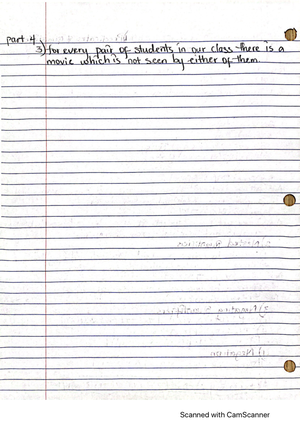 part.4
3) for every pair of students in our class there is a
movie which is not seen by either of them.
Scanned with CamScanner